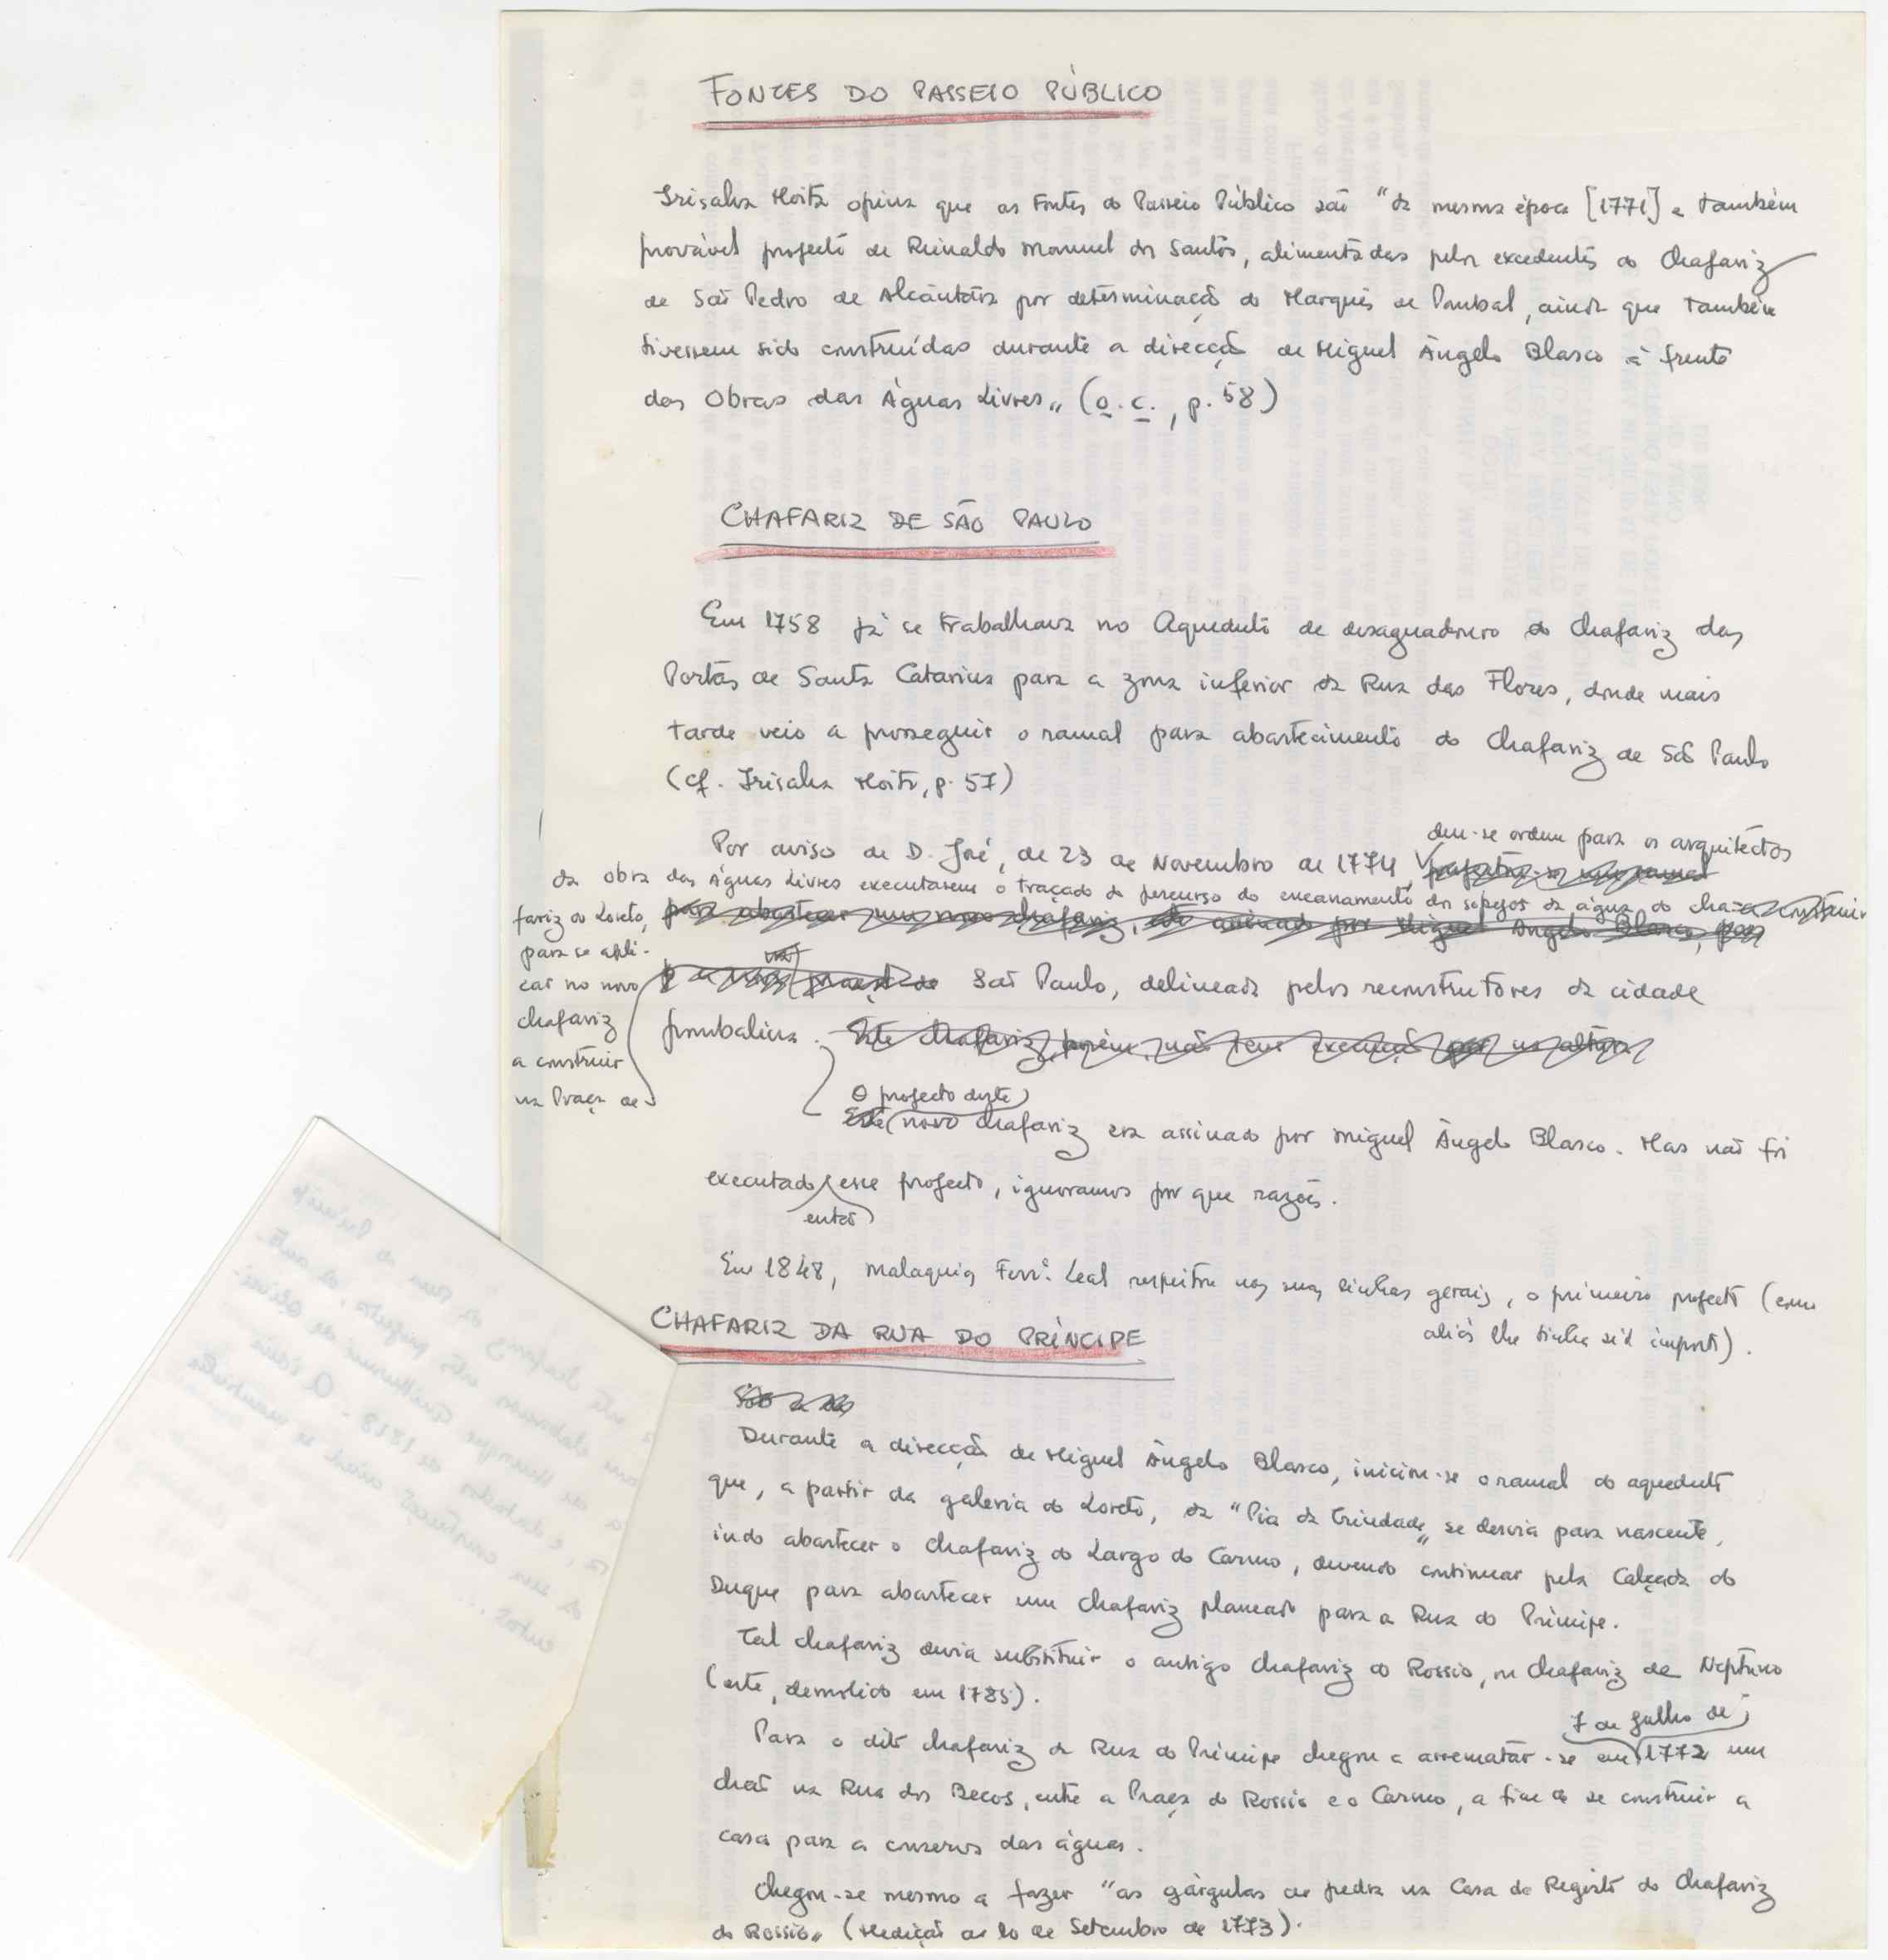 FONTES DO PASSEIO PÚBLICO
Irisalva Moita opina que as Fontes do Passeio Público são "da mesma época [1771] e também
provável projecto de Reinaldo Manuel dos Santos, alimentadas pelos excedentes do Chafariz
de São Pedro de Alcântara por determinação do Marquês de Pombal, ainda que também
tivessem sido construídas durante a direcção de Miguel Ângelo Blasco à frente
das Obras das Águas Livres" (o. c., p. 58)
CHAFARIZ DE SÃO PAULO
Em 1758 já se trabalhava no Aqueduto de desaguadouro do Chafariz das
Portas de Santa Catarina para a zona inferior da Rua das Flores, donde mais
tarde veio a prosseguir o ramal para abastecimento do Chafariz de São Paulo
(cf. Irisalva Moita, p. 57)
Por aviso de D. José, de 23 de Novembro de 1774, deu-se ordem para os arquitectos
da obra das Águas Livres executarem o traçado do percurso do encanamento dos sobejos da água do cha-
fariz do Loreto,
para se apli-
car no novo
chafariz
a construir
na Praça de
São Paulo, delineada pelos reconstrutores da cidade
pombalina. Este chafariz, porém, não teve execução na altura
O projecto deste
Este novo chafariz era assinado por Miguel Ângelo Blasco. Mas não foi
executado esse projecto, ignoramos por que razões.
então
Em 1848, Malaquias Ferrª. Leal respeitou nas suas linhas gerais, o primeiro projecto (como
aliás lhe tinha sido imposto).
CHAFARIZ DA RUA DO PRÍNCIPE
Durante a direcção de Miguel Ângelo Blasco, iniciou-se o ramal do aqueduto
que, a partir da galeria do Loreto, da "Pia da Trindade" se desvia para nascente,
indo abastecer o chafariz do Largo do Carmo, devendo continuar pela Calçada do
Duque para abastecer um chafariz planeado para a Rua do Príncipe.
Tal chafariz devia substituir o antigo chafariz do Rossio, ou chafariz de Neptuno
(este, demolido em 1785).
7 de Julho de
Para o dito chafariz da Rua do Príncipe chegou a arrematar-se em 1772 um
chão na Rua dos Becos, entre a Praça do Rossio e o Carmo, a fim de se construir a
casa para a conserva das águas.
Chegou-se mesmo a fazer "as gárgulas de pedra na Casa do Registo do Chafariz
do Rossio" (Medição de 10 de Setembro de 1773).